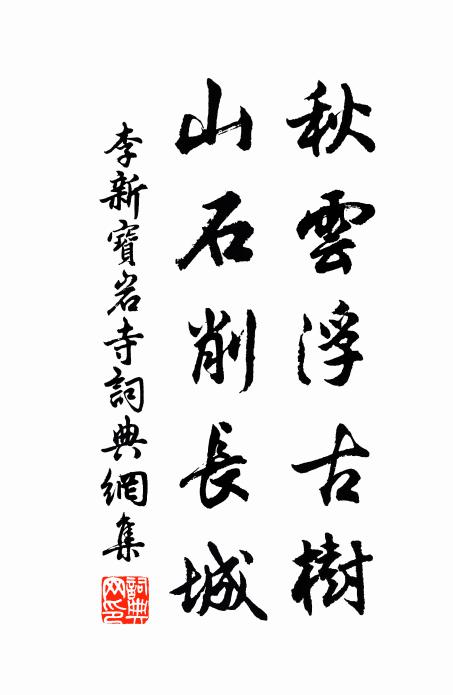 秋雲浮古樹
山石削長城
李新寶岩寺詞典網集
詞典網印